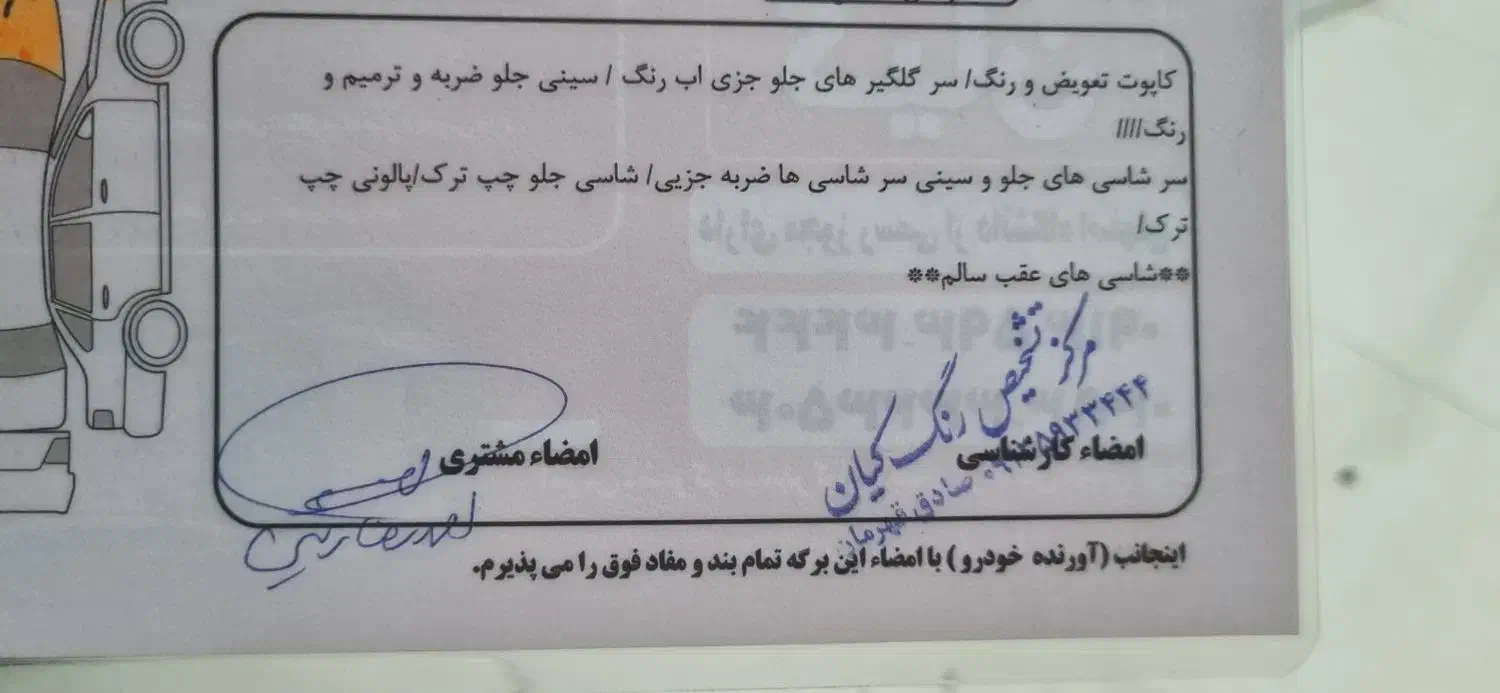 کاپوت تعویض و رنگ/ سر گلگیر های جلو جزی اب رنگ / سینی جلو ضربه و ترمیم و
رنگ////
سر شاسی های جلو و سینی سر شاسی ها ضربه جزیی/ شاسی جلو چپ ترک/پالونی چپ
ترک/
**شاسی های عقب سالم**
مرکز تشخیص رنگ کیان
صادق قهرمان
امضاء کارشناسی
امضاء مشتری
اینجانب (آورنده خودرو ) با امضاء این برگه تمام بند و مفاد فوق را می پذیرم.